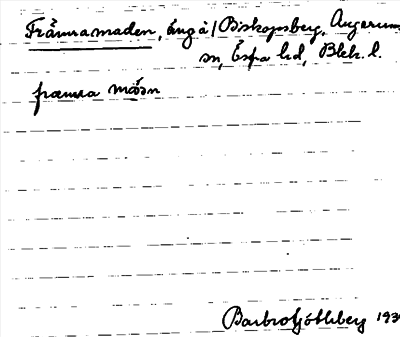 Främramaden, äng å/Biskopsberg, Augerums
sn, Ö hd, Blek. l.
fræmra måɔn
Barbro Sjöblberg 193